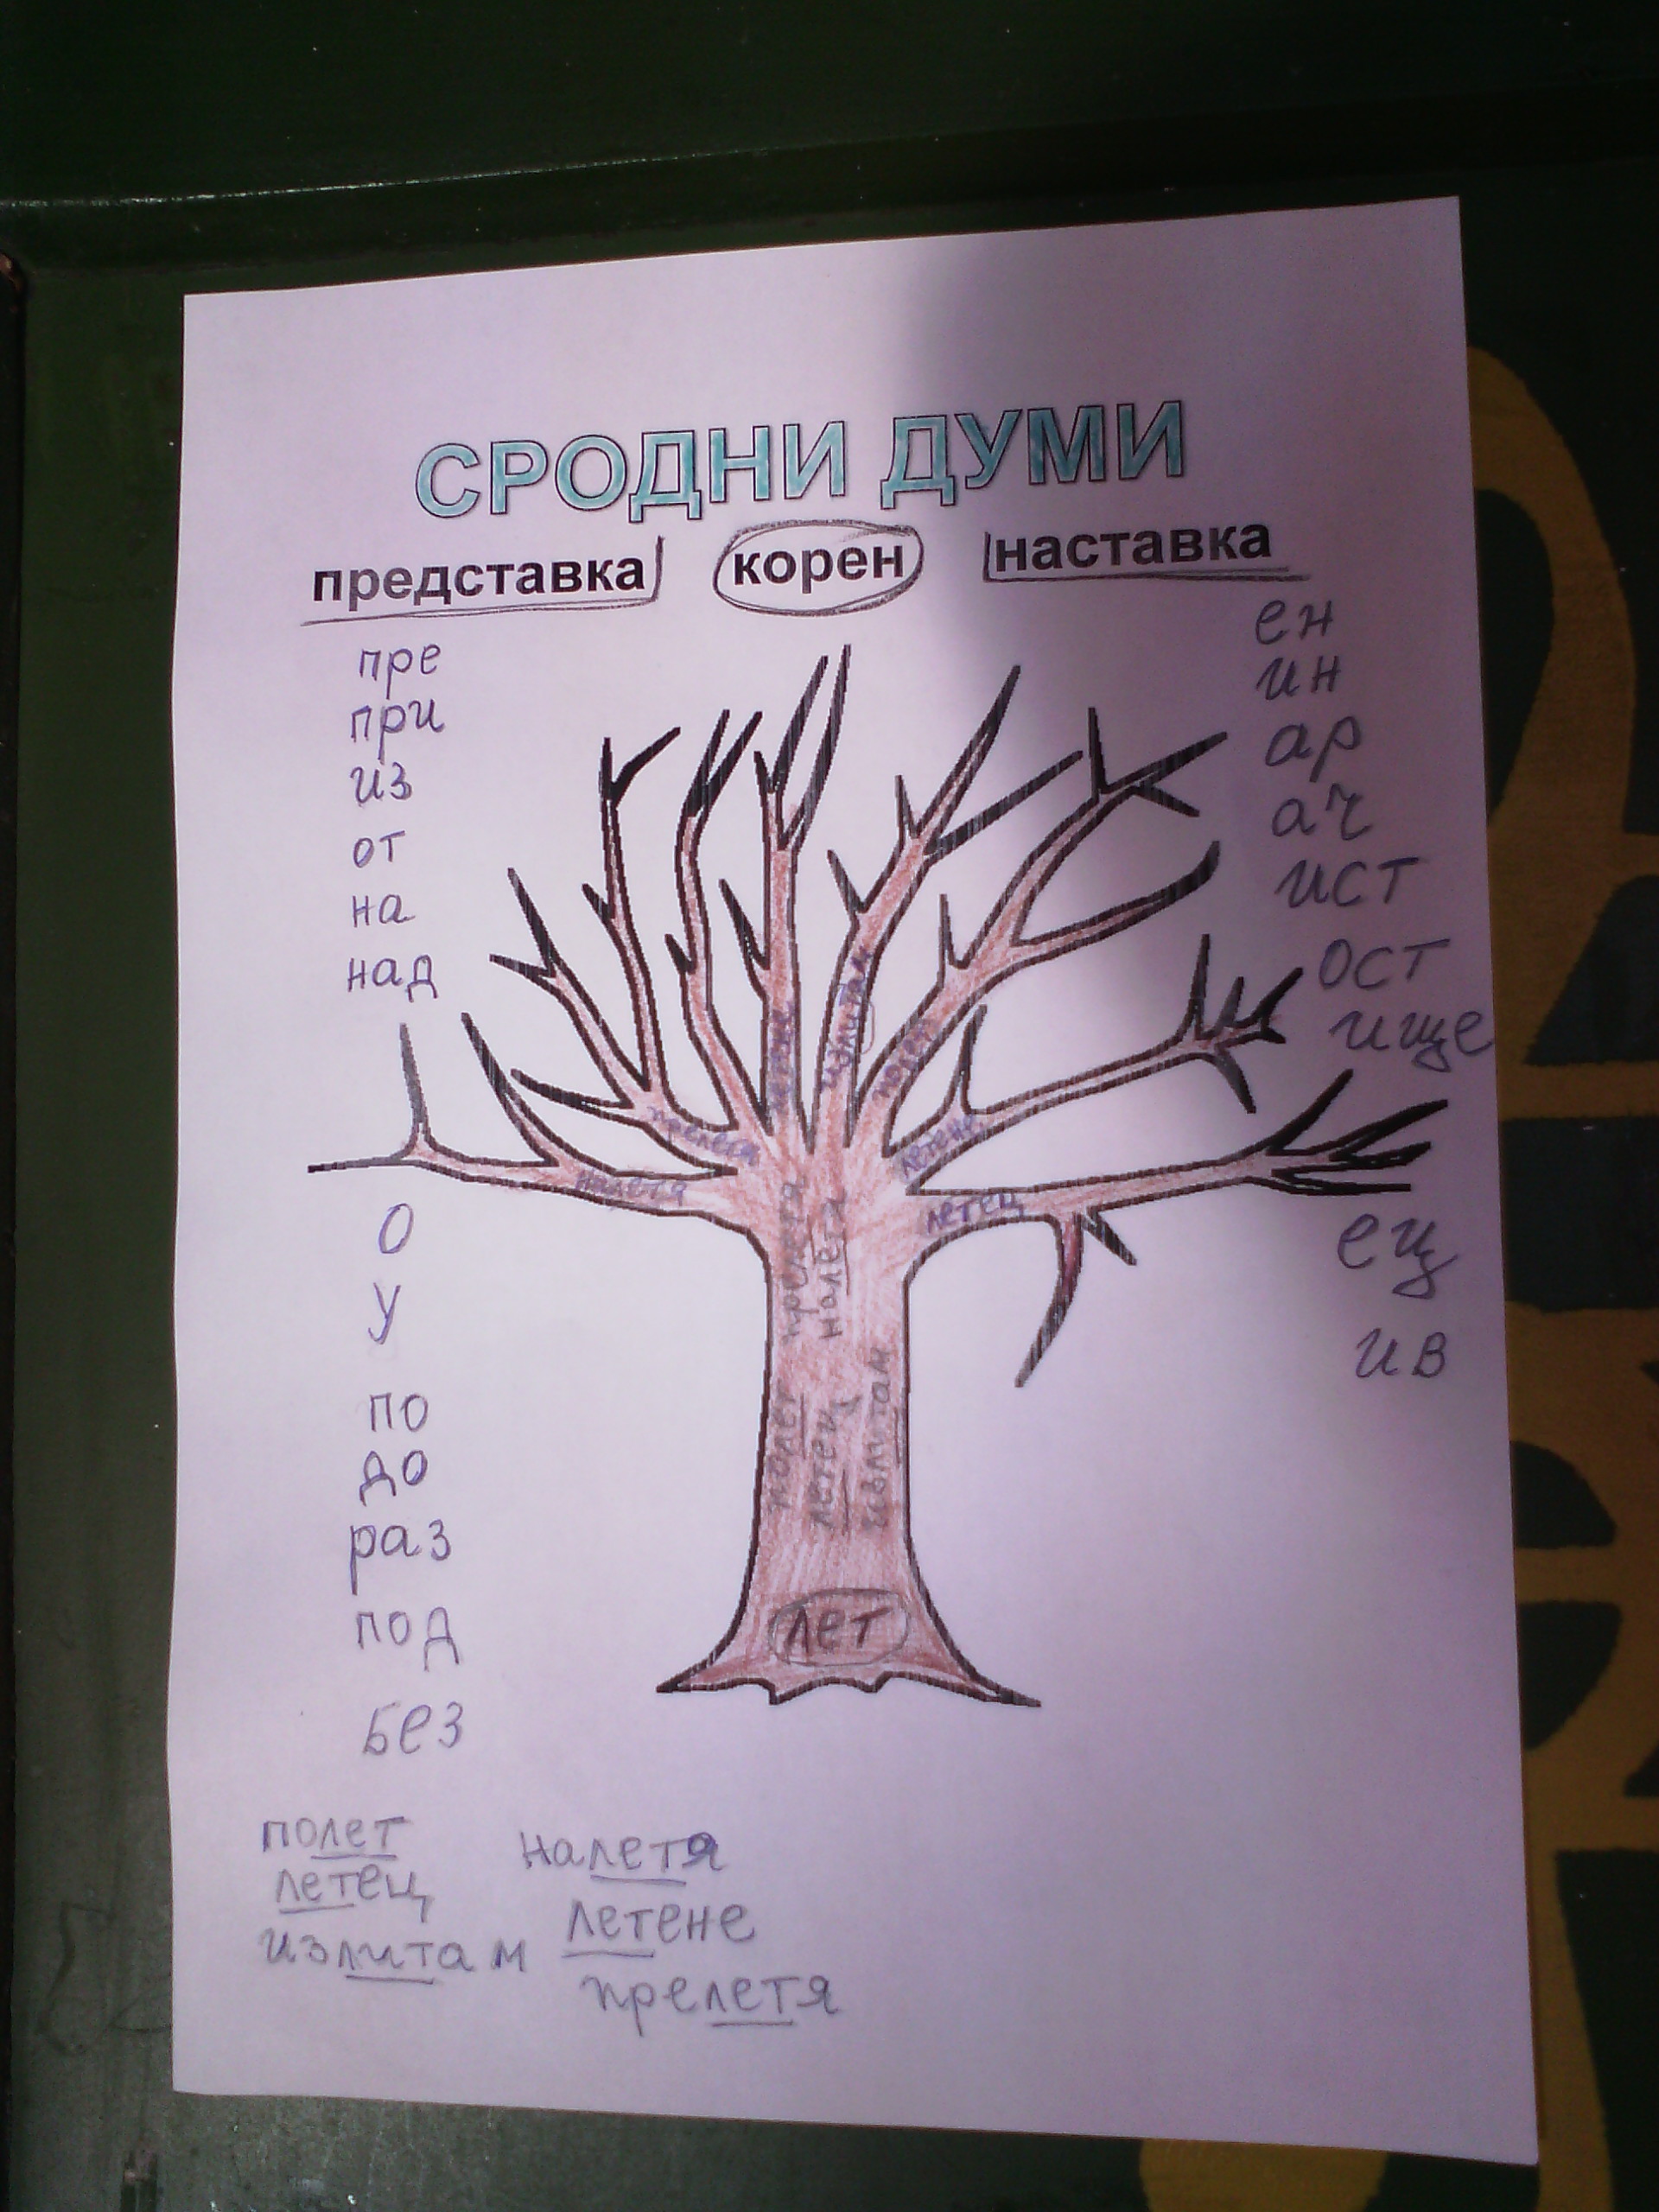 СРОДНИ ДУМИ
представка корен наставка
пре
при
из
от
на
над
о
у
по
до
раз
под
без
ен
ин
ар
ач
ист
ост
ище
ец
ив
излитам
полет
летене
прелетя
налетя
летец
прелетя
налетя
полет
летец
излитам
лет
полет
летец
излитам
налетя
летене
прелетя